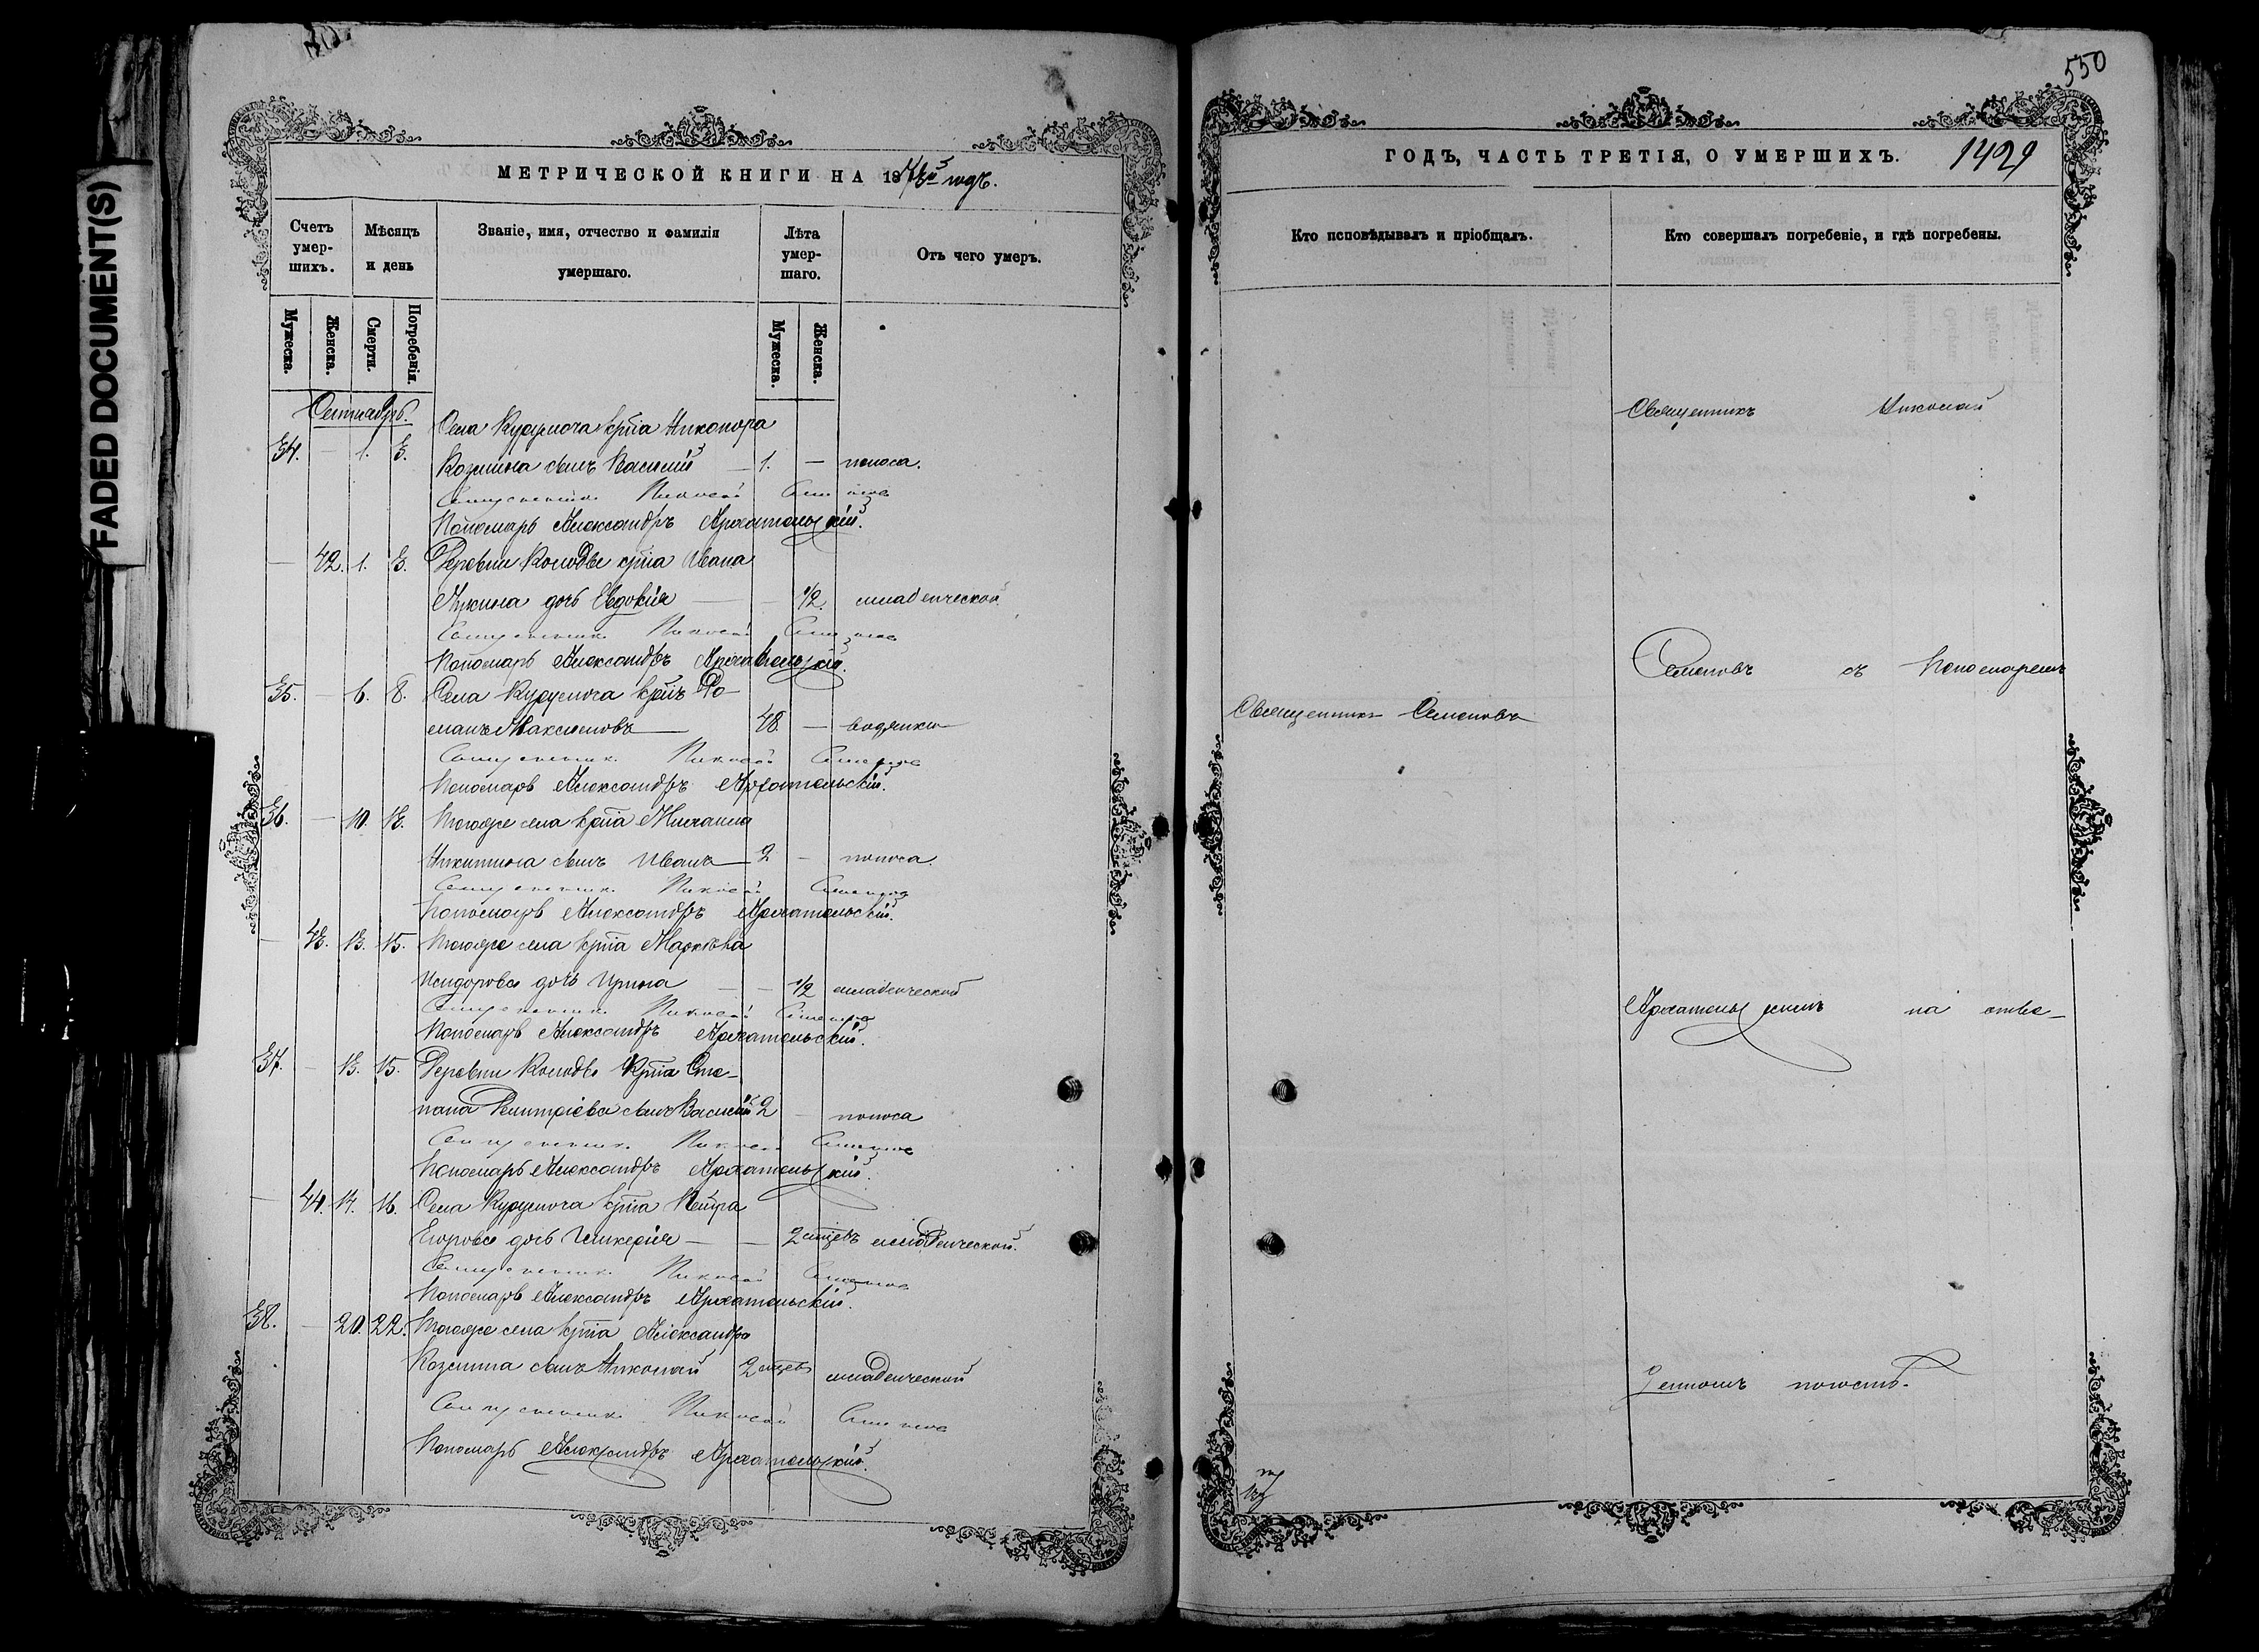 FADED DOCUMENT(S)
МЕТРИЧЕСКОЙ КНИГИ НА 18 годъ.
Счетъ умер-шихъ.
Мѣсяцъ и день
Званіе, имя, отчество и фамилія умершаго.
Лѣта умер-шаго.
Отъ чего умеръ.
Мужеска.
Женска.
Смерти.
Погребенія.
Мужеска.
Женска.
Сентябрь.
Села крт͠а Никонора
34. — 1. 3. Козмина сынъ Василій — 1. — поноса.
Священникъ Николай Семеновъ
Пономарь Александръ Архангельскій.
— 42. 1. 3. Деревни крт͠а Ивана
Лукина дочь Евдокія — — 1/2. младенческой.
Священникъ Николай Семеновъ
Пономарь Александръ Архангельскій.
35. — 6. 8. Села Ро-
манъ Максимовъ — 48. — водянки
Священникъ Николай Семеновъ
Пономарь Александръ Архангельскій.
36. — 10. 13. Тогоже села крт͠а Михаила
Никитина сынъ Иванъ — 2 — поноса.
Священникъ Николай Семеновъ
Пономарь Александръ Архангельскій.
— 43. 13. 15. Тогоже села крт͠а
Исидорова дочь Ирина — — 1/2 младенческой
Священникъ Николай Семеновъ
Пономарь Александръ Архангельскій.
37. — 13. 15. Деревни крт͠а Сте-
пана Димитріева сынъ Василій 2 — поноса
Священникъ Николай Семеновъ
Пономарь Александръ Архангельскій.
— 44. 14. 16. Села крт͠а Петра
Егорова дочь Гликерія — — 2 мцевъ младенческой.
Священникъ Николай Семеновъ
Пономарь Александръ Архангельскій.
38. — 20. 22. Тогоже села крт͠а Александра
Козмина сынъ Николай 2 мцевъ младенческой
Священникъ Николай Семеновъ
Пономарь Александръ Архангельскій.
550
ГОДЪ, ЧАСТЬ ТРЕТІЯ, О УМЕРШИХЪ.
1429
Кто исповѣдывалъ и пріобщалъ.
Кто совершалъ погребеніе, и гдѣ погребены.
Священникъ Николай
Семеновъ съ Пономаремъ
Священникъ Семеновъ
Архангельскимъ на отве-
денномъ погостѣ.